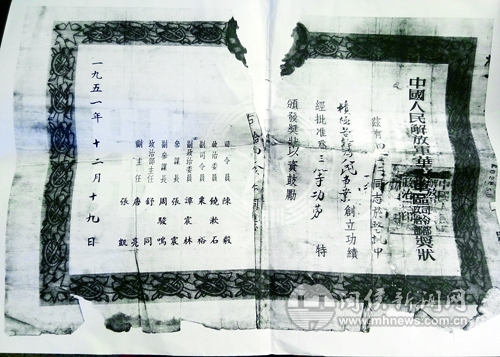 中國人民解放軍華東軍區
獎狀
茲有
同志於
中
創立功績
經批准為三等功勞 特
頒發獎狀以資鼓勵
司令員 陳毅
政治委員 饒漱石
副司令員 粟裕
副政治委員 譚震林
參謀長 張震
副參謀長 周駿鳴
政治部主任 舒同
副主任 唐亮
張凱
一九五一年十二月十九日
闽侯新闻网
www.mhnews.com.cn